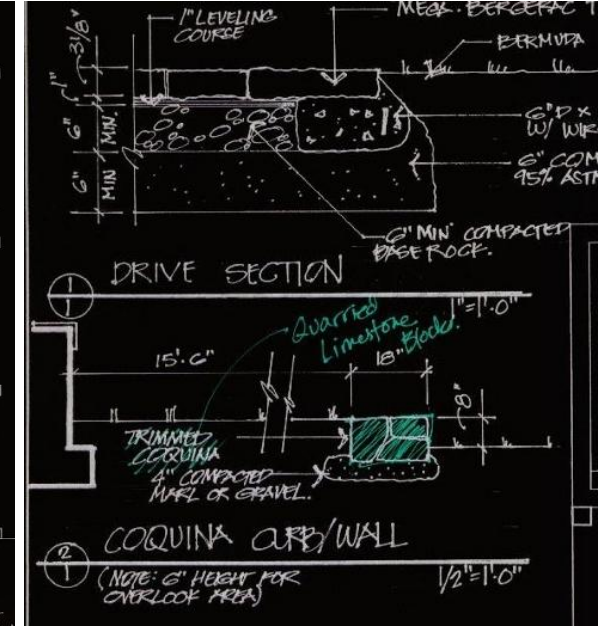 1" LEVELING
COURSE
MEGA-BERGERAC
BERMUDA
3 1/8"
1"
6"
MIN.
6"
MIN
6"D X
W/ WIR
6" COM
95% ASTM
6" MIN COMPACTED
BASE ROCK.
1
1
DRIVE SECTION
1"=1'-0"
Quarried
Limestone
Blocks.
15'-6"
18"
8"
TRIMMED
COQUINA
4" COMPACTED
MARL OR GRAVEL.
2
1
COQUINA CURB/WALL
(NOTE: 6" HEIGHT FOR
OVERLOOK AREA)
1/2"=1'-0"